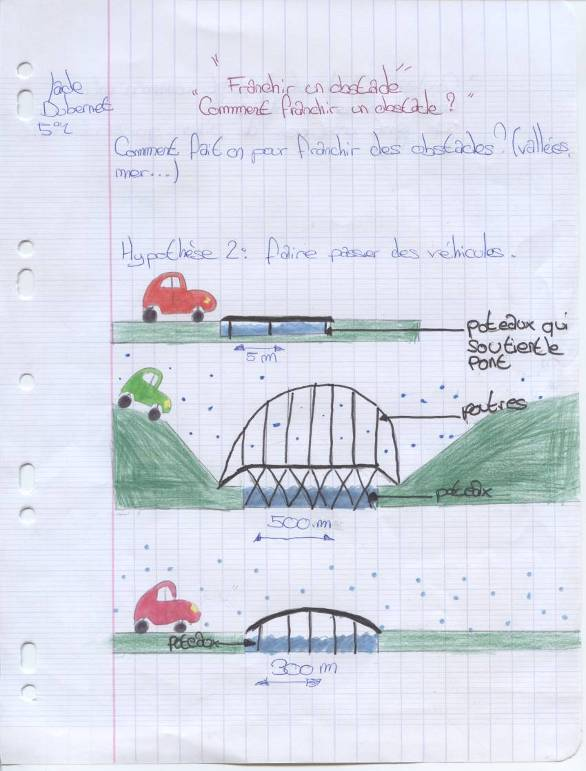 Jade
Dubernet
5°2
"Franchir un obstacle"
"Commment franchir un obstacle ?"
Comment fait on pour franchir des obstacles? (vallées,
mer...)
Hypothèse 2: faire passer des véhicules.
poteaux qui
soutient le
pont
5 m
poutres
poteaux
500 m
poteaux
300 m